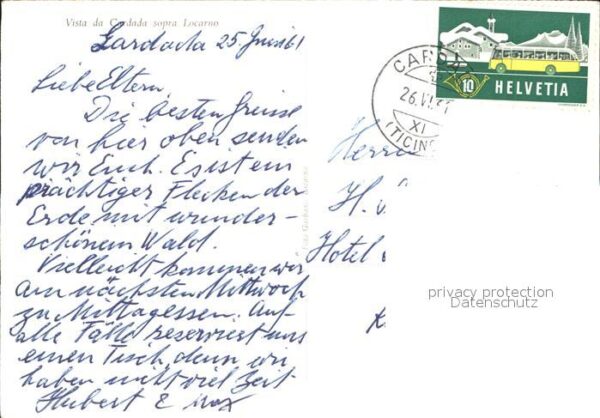 Vista da Cardada sopra Locarno
Cardada 25 Juni 61
Liebe Eltern,
Die besten Grüsse
von hier oben senden
wir Euch. Es ist ein
prächtiger Flecken der
Erde mit wunder-
schönem Wald.
Vielleicht kommen wir
am nächsten Mittwoch
zu Mittagessen. Auf
alle Fälle reserviert uns
einen Tisch, denn wir
haben nicht viel Zeit
Hubert &
10 HELVETIA
CARDA
26.VI.61
XI
(TICINO
Herrn
H.
Hotel
privacy protection
Datenschutz